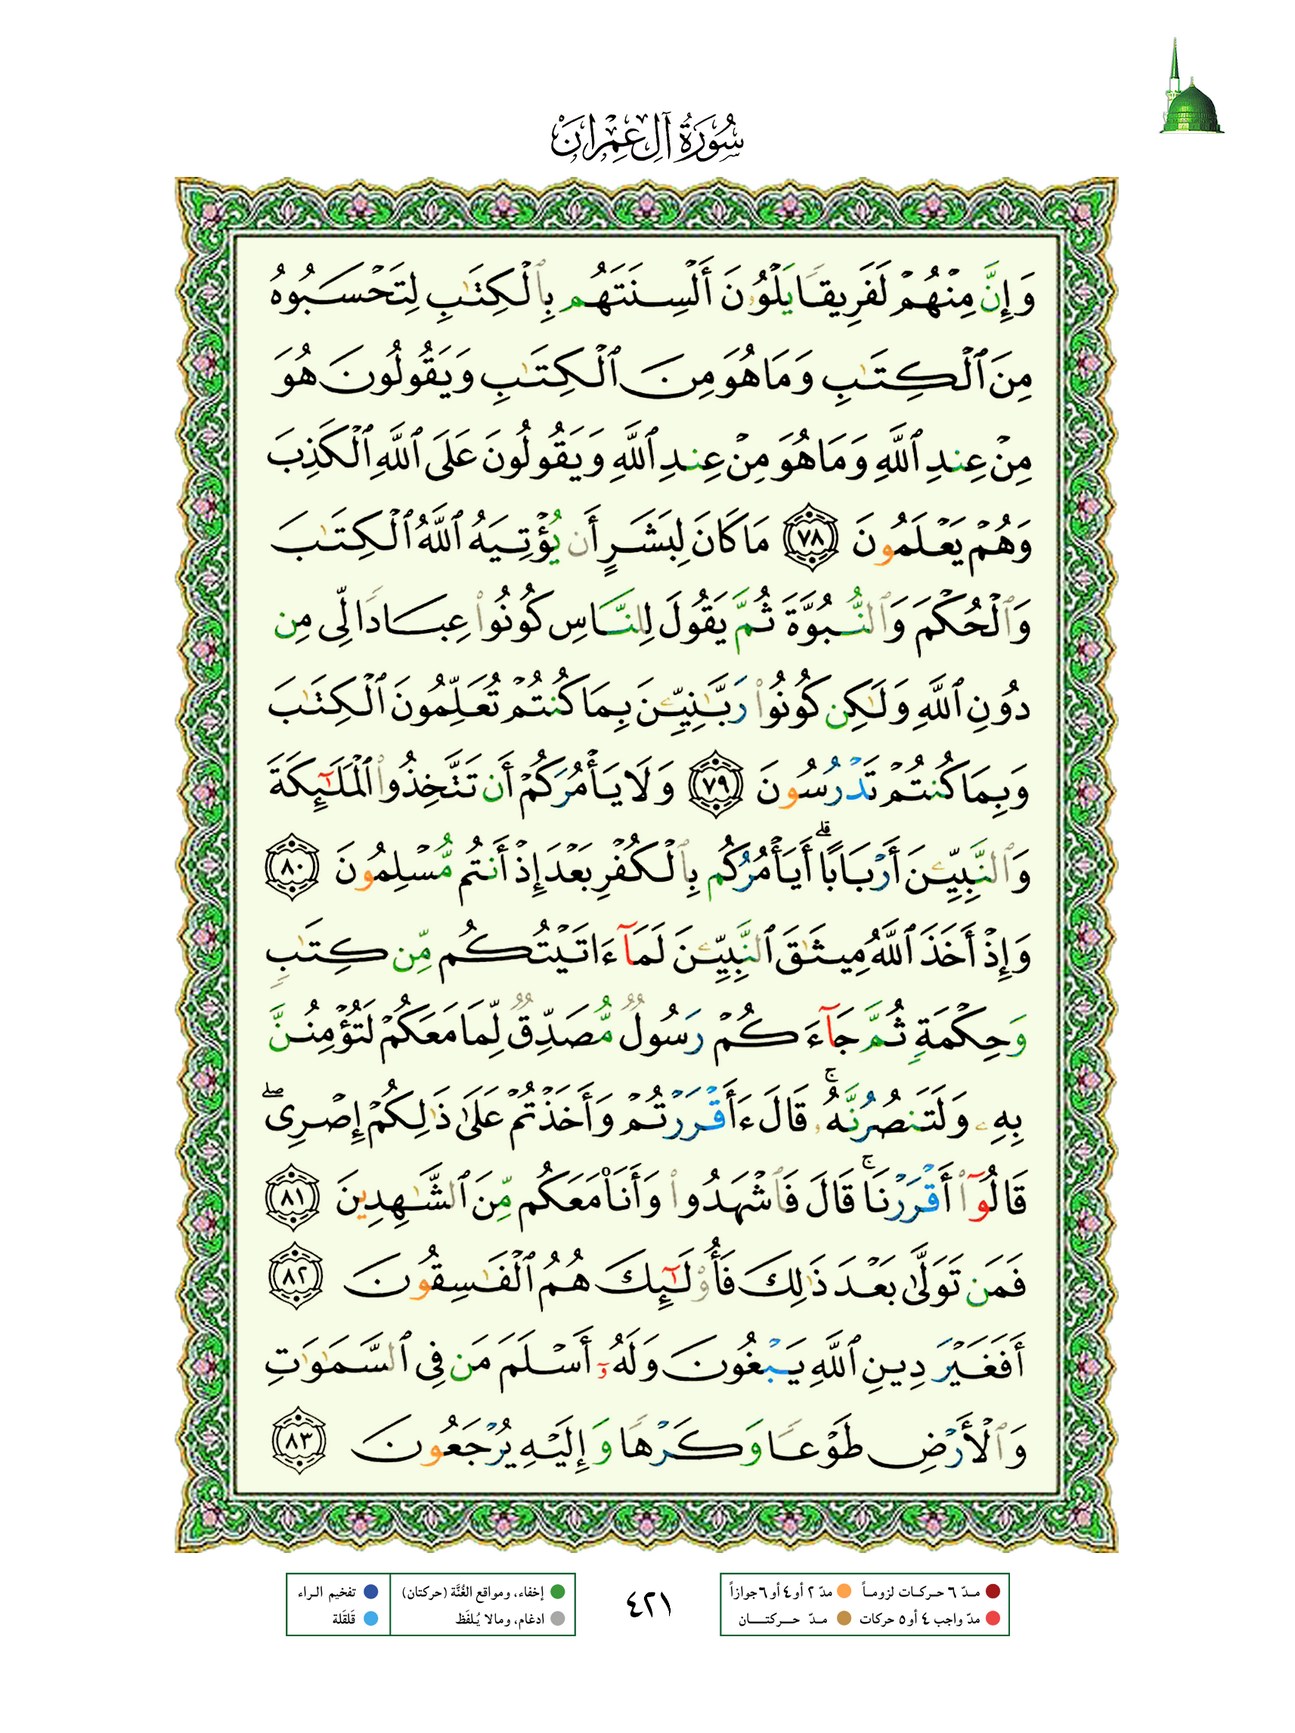 سُورَةُ آلِ عِمْرَان
وَإِنَّ مِنْهُمْ لَفَرِيقًا يَلْوُۥنَ أَلْسِنَتَهُم بِٱلْكِتَٰبِ لِتَحْسَبُوهُ
مِنَ ٱلْكِتَٰبِ وَمَا هُوَ مِنَ ٱلْكِتَٰبِ وَيَقُولُونَ هُوَ
مِنْ عِندِ ٱللَّهِ وَمَا هُوَ مِنْ عِندِ ٱللَّهِ وَيَقُولُونَ عَلَى ٱللَّهِ ٱلْكَذِبَ
وَهُمْ يَعْلَمُونَ ٧٨ مَا كَانَ لِبَشَرٍ أَن يُؤْتِيَهُ ٱللَّهُ ٱلْكِتَٰبَ
وَٱلْحُكْمَ وَٱلنُّبُوَّةَ ثُمَّ يَقُولَ لِلنَّاسِ كُونُوا۟ عِبَادًا لِّى مِن
دُونِ ٱللَّهِ وَلَٰكِن كُونُوا۟ رَبَّٰنِيِّۦنَ بِمَا كُنتُمْ تُعَلِّمُونَ ٱلْكِتَٰبَ
وَبِمَا كُنتُمْ تَدْرُسُونَ ٧٩ وَلَا يَأْمُرَكُمْ أَن تَتَّخِذُوا۟ ٱلْمَلَٰٓئِكَةَ
وَٱلنَّبِيِّۦنَ أَرْبَابًا ۗ أَيَأْمُرُكُم بِٱلْكُفْرِ بَعْدَ إِذْ أَنتُم مُّسْلِمُونَ ٨٠
وَإِذْ أَخَذَ ٱللَّهُ مِيثَٰقَ ٱلنَّبِيِّۦنَ لَمَآ ءَاتَيْتُكُم مِّن كِتَٰبٍ
وَحِكْمَةٍ ثُمَّ جَآءَكُمْ رَسُولٌ مُّصَدِّقٌ لِّمَا مَعَكُمْ لَتُؤْمِنُنَّ
بِهِۦ وَلَتَنصُرُنَّهُۥ ۚ قَالَ ءَأَقْرَرْتُمْ وَأَخَذْتُمْ عَلَىٰ ذَٰلِكُمْ إِصْرِى ۖ
قَالُوٓا۟ أَقْرَرْنَا ۚ قَالَ فَٱشْهَدُوا۟ وَأَنَا۠ مَعَكُم مِّنَ ٱلشَّٰهِدِينَ ٨١
فَمَن تَوَلَّىٰ بَعْدَ ذَٰلِكَ فَأُو۟لَٰٓئِكَ هُمُ ٱلْفَٰسِقُونَ ٨٢
أَفَغَيْرَ دِينِ ٱللَّهِ يَبْغُونَ وَلَهُۥٓ أَسْلَمَ مَن فِى ٱلسَّمَٰوَٰتِ
وَٱلْأَرْضِ طَوْعًا وَكَرْهًا وَإِلَيْهِ يُرْجَعُونَ ٨٣
مدّ ٦ حركات لزوماً مدّ ٢ أو ٤ أو ٦ جوازاً
مدّ واجب ٤ أو ٥ حركات مدّ حركتان
٤٢١
إخفاء، ومواقع الغُنَّة (حركتان) تفخيم الراء
ادغام، ومالا يُلفَظ قلقلة